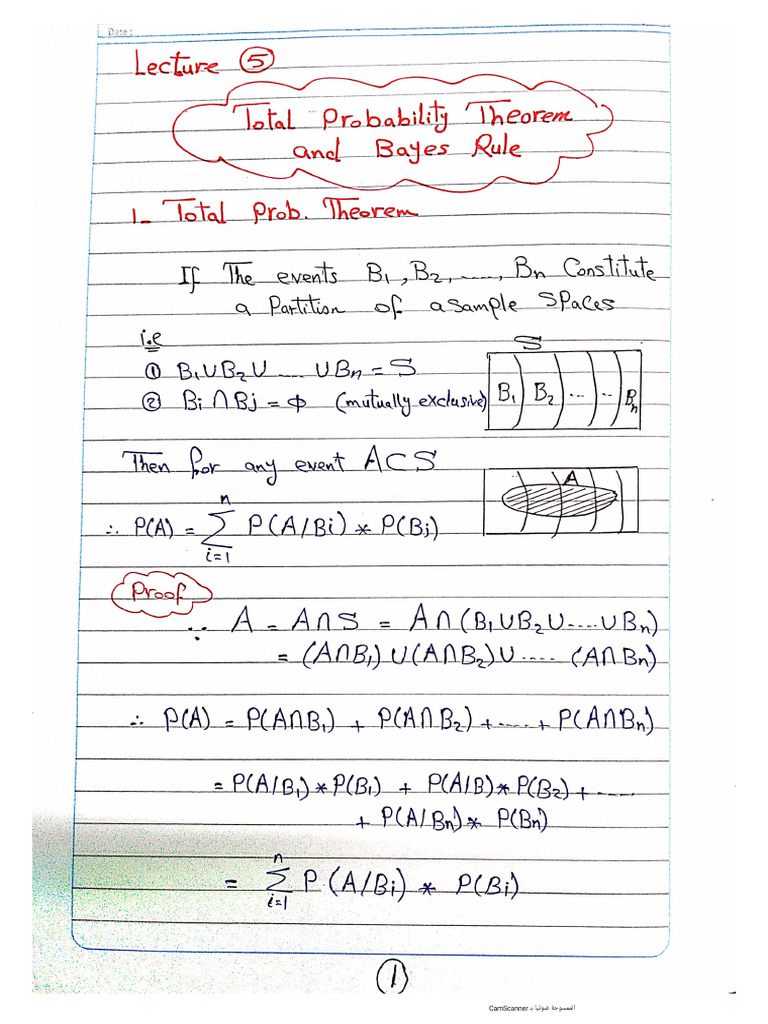 Date:
Lecture ⑤
Total Probability Theorem
and Bayes Rule
1- Total Prob. Theorem
If The events B₁, B₂, ....., Bn Constitute
a Partition of a sample Spaces
i.e
① B₁∪B₂∪ ..... ∪Bn = S
② Bi ∩ Bj = Φ (mutually exclusive)
S
B₁ B₂ ... .. Bn
Then for any event A⊂S
A
∴ P(A) = Σ P(A/Bi) * P(Bi)
n
i=1
Proof
∵ A = A∩S = A∩(B₁∪B₂∪.....∪Bn)
= (A∩B₁)∪(A∩B₂)∪..... (A∩Bn)
∴ P(A) = P(A∩B₁) + P(A∩B₂) + ..... + P(A∩Bn)
= P(A/B₁)*P(B₁) + P(A/B)*P(B₂) + .....
+ P(A/Bn)* P(Bn)
n
= Σ P(A/Bi) * P(Bi)
i=1
①
الممسوحة ضوئيا بـ CamScanner